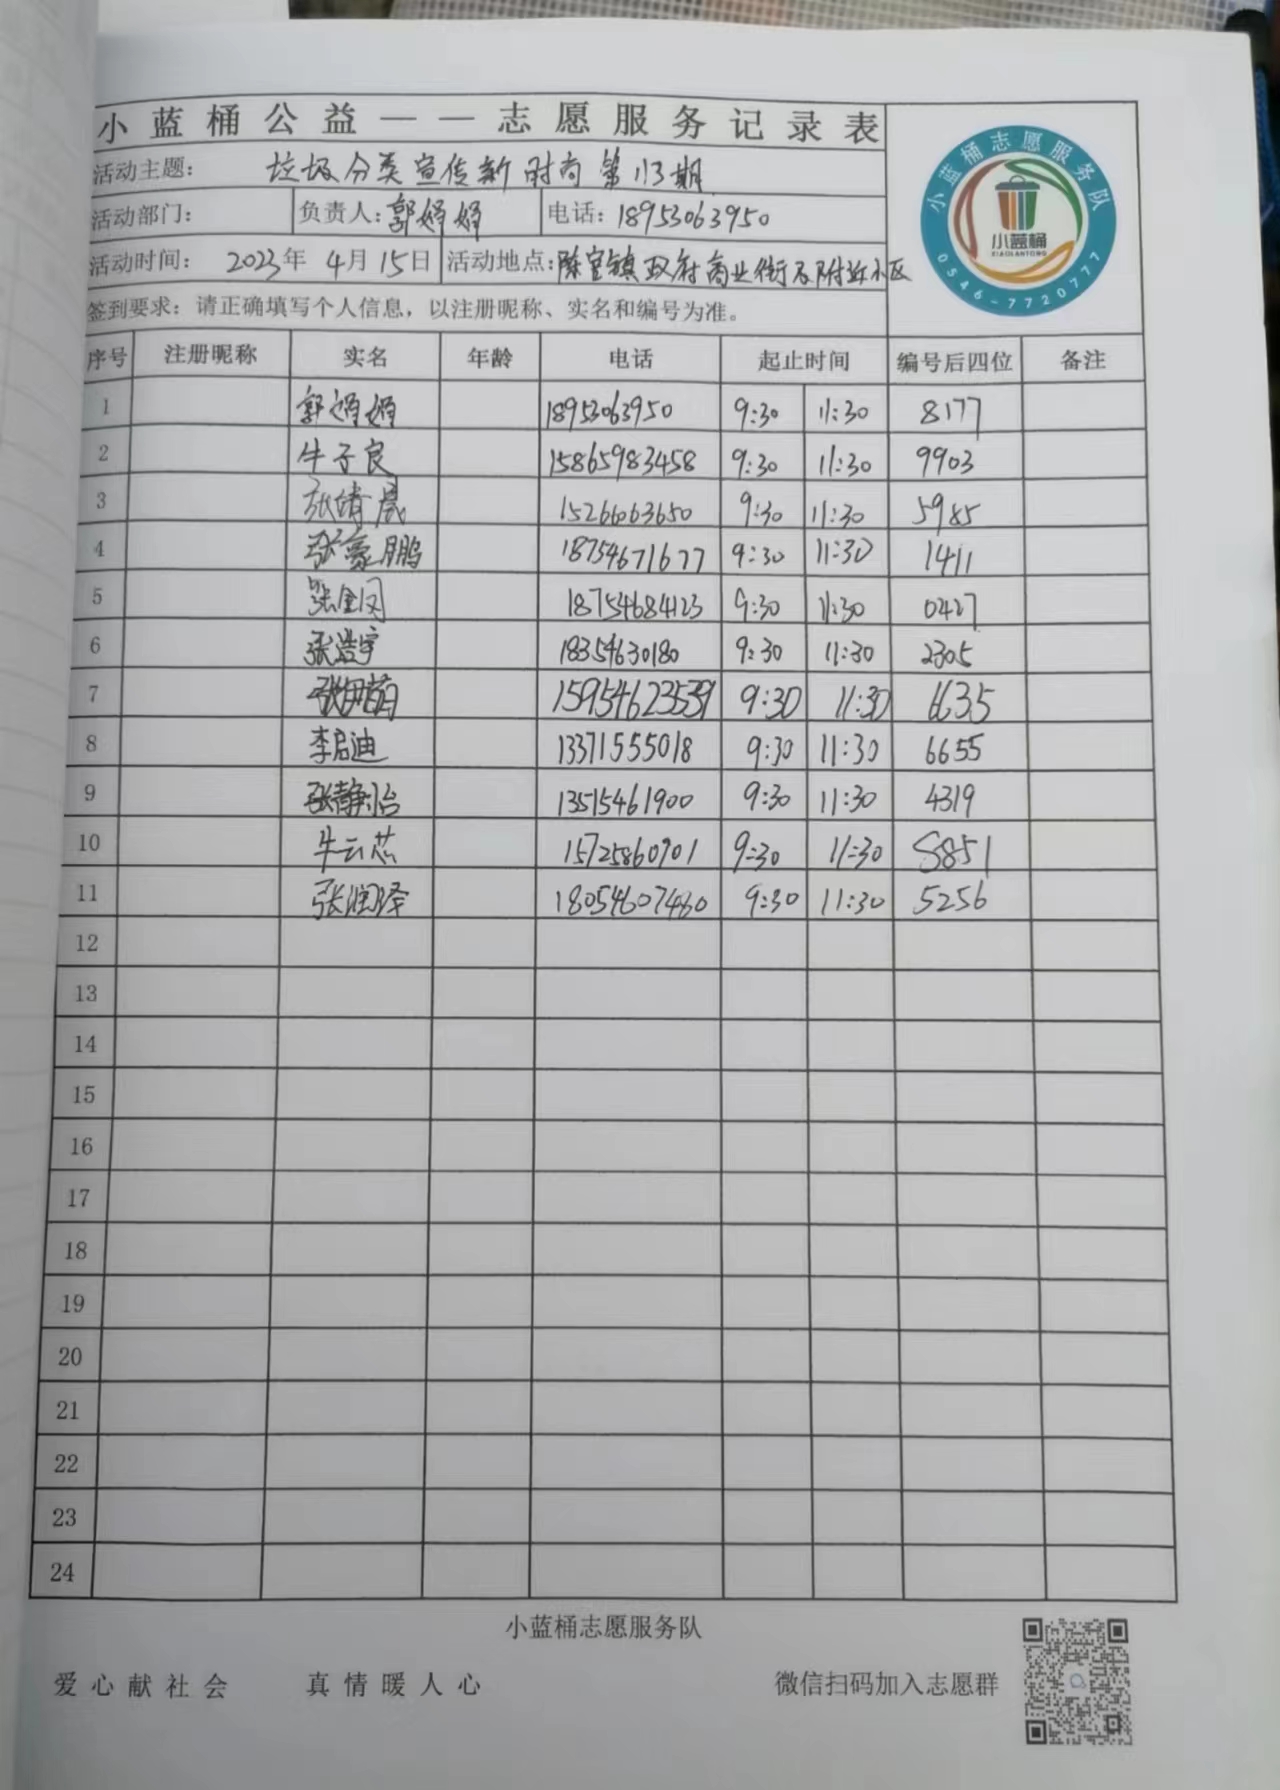 小蓝桶公益——志愿服务记录表
活动主题： 垃圾分类宣传新时尚第113期
活动部门： 负责人：郭娟娟 电话：18953063950
活动时间： 2023年 4月 15日 活动地点：陈官镇政府商业街及附近小区
签到要求：请正确填写个人信息，以注册昵称、实名和编号为准。
小蓝桶志愿服务队
小蓝桶
XIAOLANTONG
0546-7720777
序号 注册昵称 实名 年龄 电话 起止时间 编号后四位 备注
1 郭娟娟 18953063950 9:30 11:30 8177
2 牛子良 15865983458 9:30 11:30 9903
3 张靖晨 15266063650 9:30 11:30 5985
4 张豪鹏 18754671677 9:30 11:30 1411
5 18754684123 9:30 11:30 0427
6 张浩宇 18354630180 9:30 11:30 2305
7 9:30 11:30 6635
8 李启迪 13371555018 9:30 11:30 6655
9 张静怡 13515461900 9:30 11:30 4319
10 牛云芯 15725860901 9:30 11:30 8851
11 张润泽 18054607480 9:30 11:30 5256
12
13
14
15
16
17
18
19
20
21
22
23
24
小蓝桶志愿服务队
爱心献社会 真情暖人心 微信扫码加入志愿群